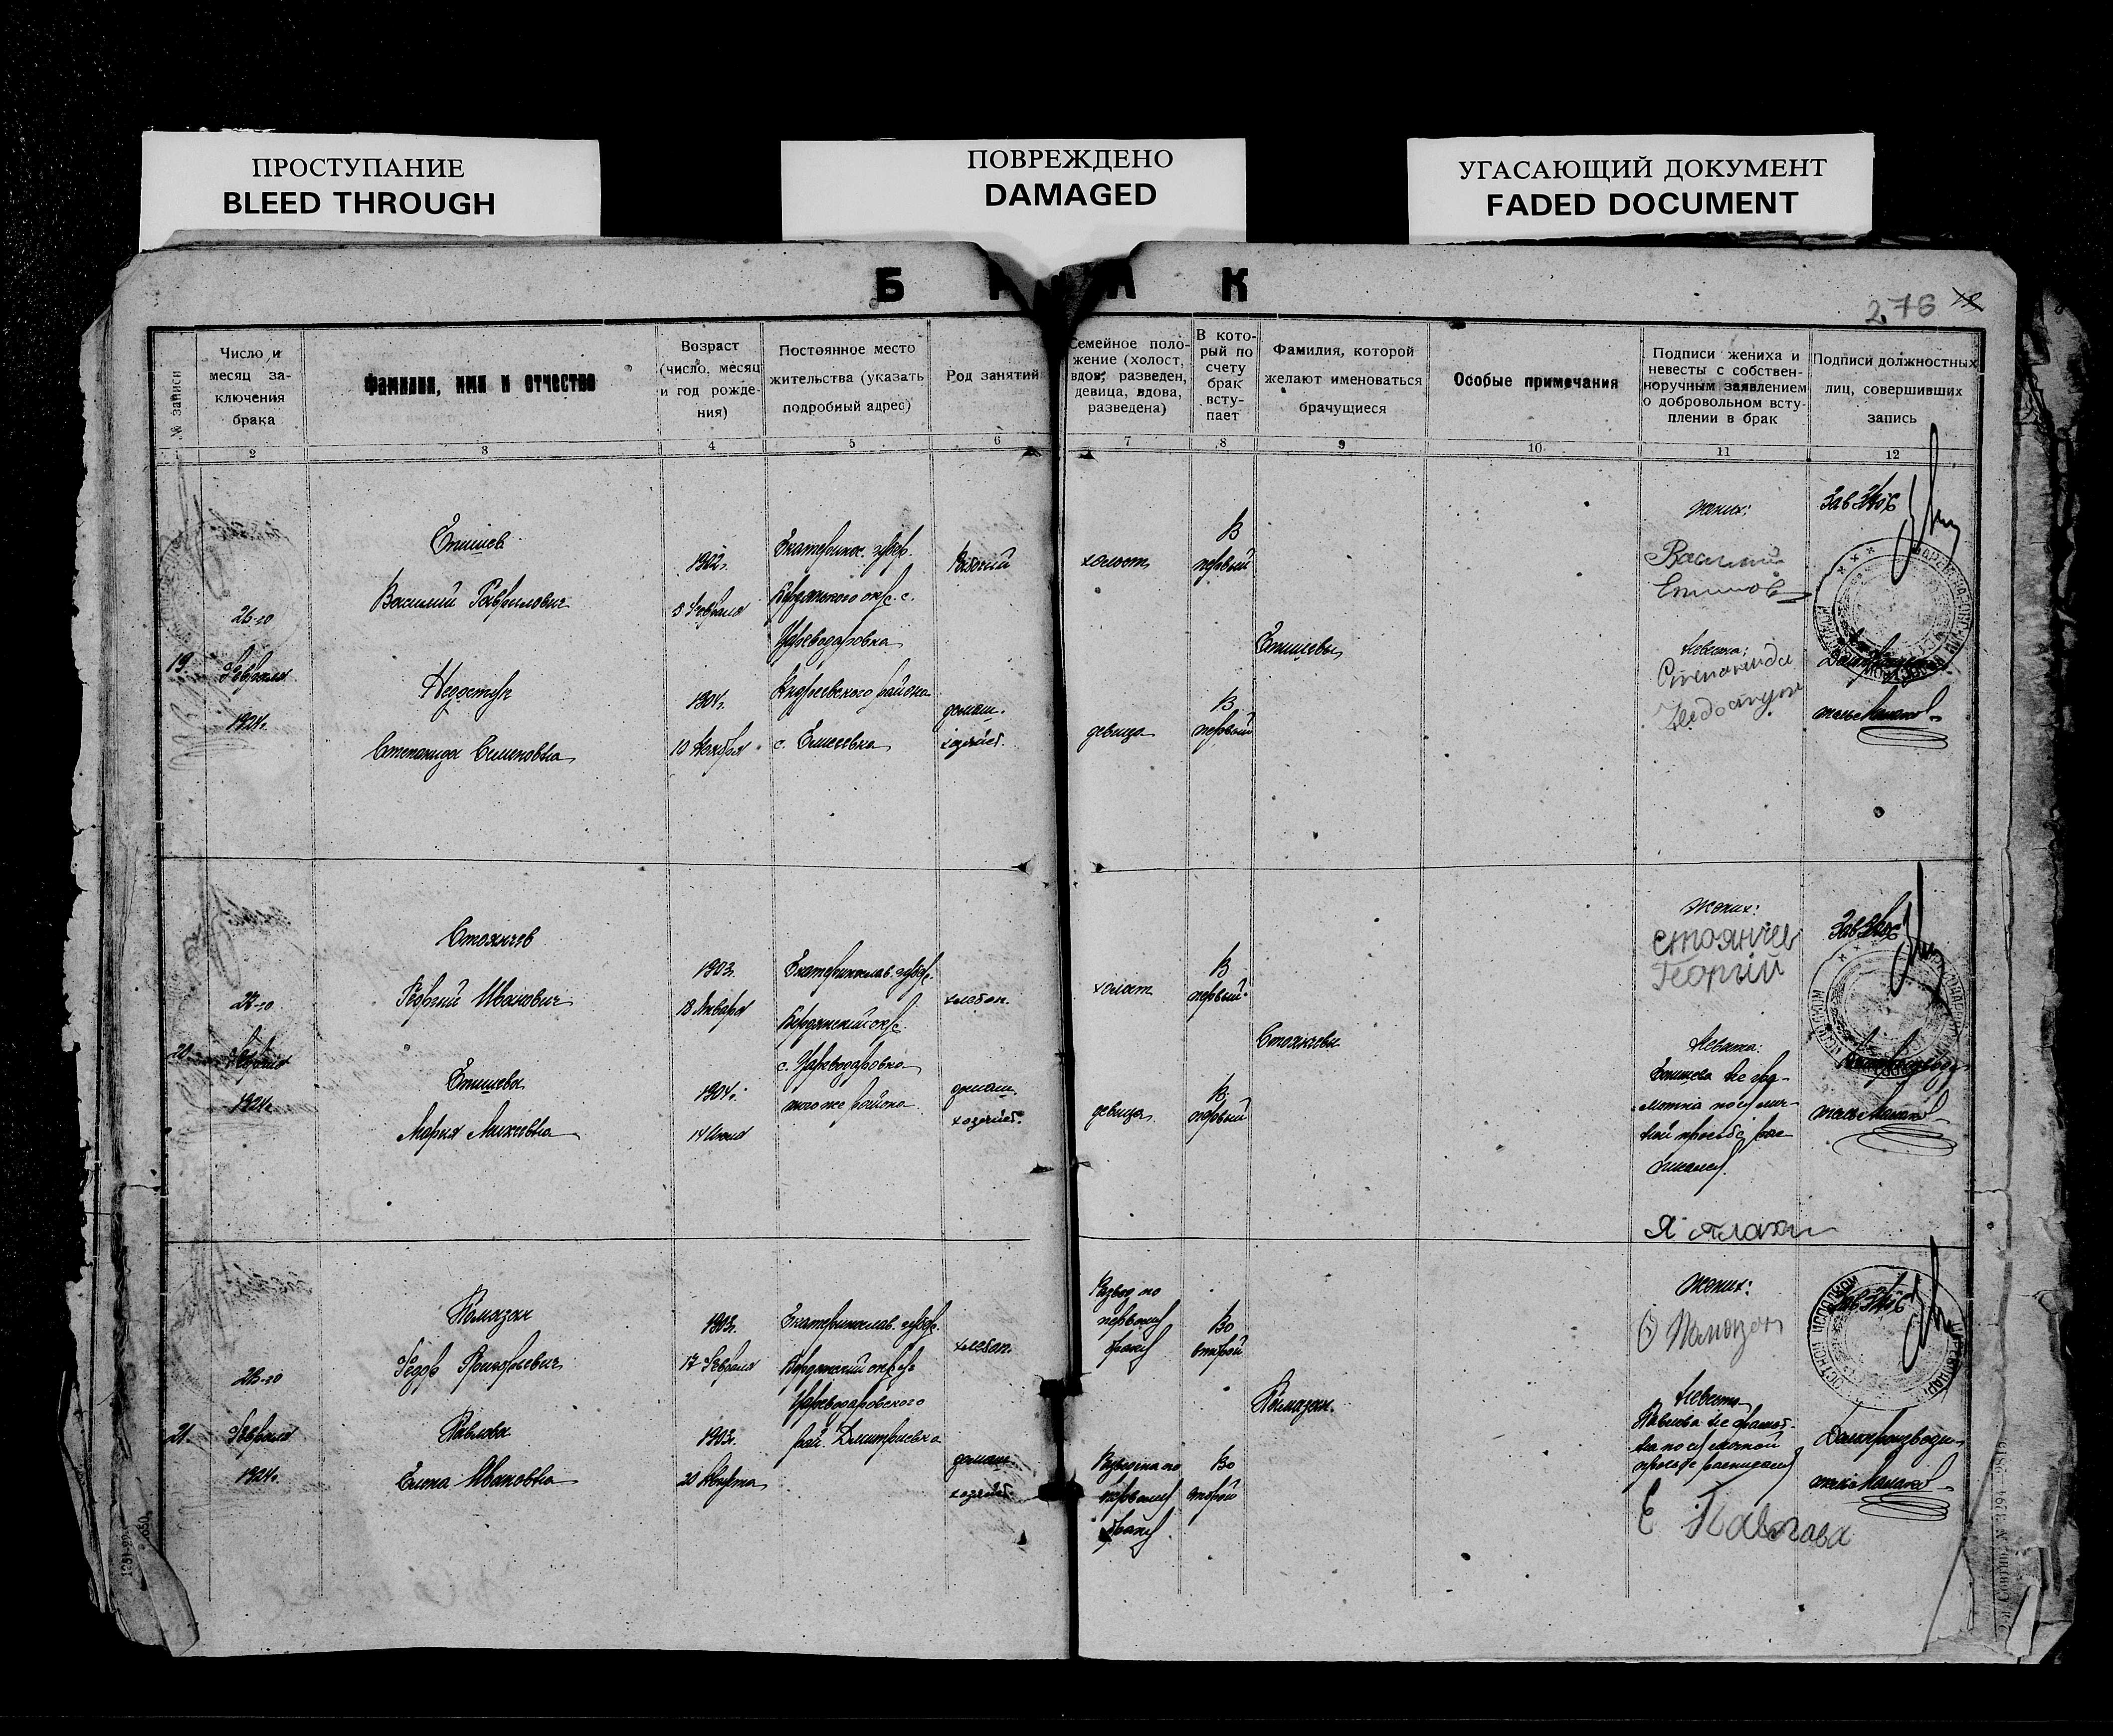 ПРОСТУПАНИЕ
BLEED THROUGH
ПОВРЕЖДЕНО
DAMAGED
УГАСАЮЩИЙ ДОКУМЕНТ
FADED DOCUMENT
Б К
276
№ записи
Число и
месяц за-
ключения
брака
Фамилия, имя и отчество
Возраст
(число, месяц
и год рожде-
ния)
Постоянное место
жительства (указать
подробный адрес)
Род занятий
Семейное поло-
жение (холост,
вдов, разведен,
девица, вдова,
разведена)
В кото-
рый по
счету
брак
всту-
пает
Фамилия, которой
желают именоваться
брачущиеся
Особые примечания
Подписи жениха и
невесты с собствен-
норучным заявлением
о добровольном всту-
плении в брак
Подписи должностных
лиц, совершивших
запись
2 3 4 5 6 7 8 9 10 11 12
19
26-го
Февраля
1924г.
Епишев
Василий Гаврилович
Недоступ
Степанида Семеновна
1902г.
5 Февраля
1904г.
10 Ноября
Екатеринос. губер.
Бердянского окр. с.
Цареводаровка
Андреевского района
с. Елисеевка
Рабочий
домаш.
хозяйст.
холост
девица
В
первый
В
первый
Епишевы
Жених:
Василий
Епишов
Невеста:
Степанида
Недоступ
Зав ЗАГС
20
27-го
Февраля
1924г.
Стоянчев
Георгий Иванович
Епишева
Мария
1903г.
18 Января
1904г.
14 Июля
Екатеринослав. губер.
Бердянский окр.
с. Цареводаровка
того же района
хлебоп.
домаш.
хозяйст.
холост
девица
В
первый
В
первый
Стоянчевы
Жених:
Стоянчев
Георгій
Невеста:
Епишева не гра-
мотна по ее лич-
ной просьбе рас-
писался
Зав ЗАГС
21
28-го
Февраля
1924г.
Памазан
Федор Григорьевич
Павлова
Елена Ивановна
1903г.
17 Февраля
1903г.
20 Августа
Екатеринослав. губер.
Бердянский округ
Цареводаровского
рай. Дмитриевка
хлебоп.
домаш.
хозяйст.
Развед по
первому
браку
Разведена по
первому
браку
Во
второй
Во
второй
Памазан.
Жених:
Памазан
Невеста
Павлова не грамот-
на по ее личной
просьбе расписался
Е Павлова
Зав ЗАГС
Делопроизводи-